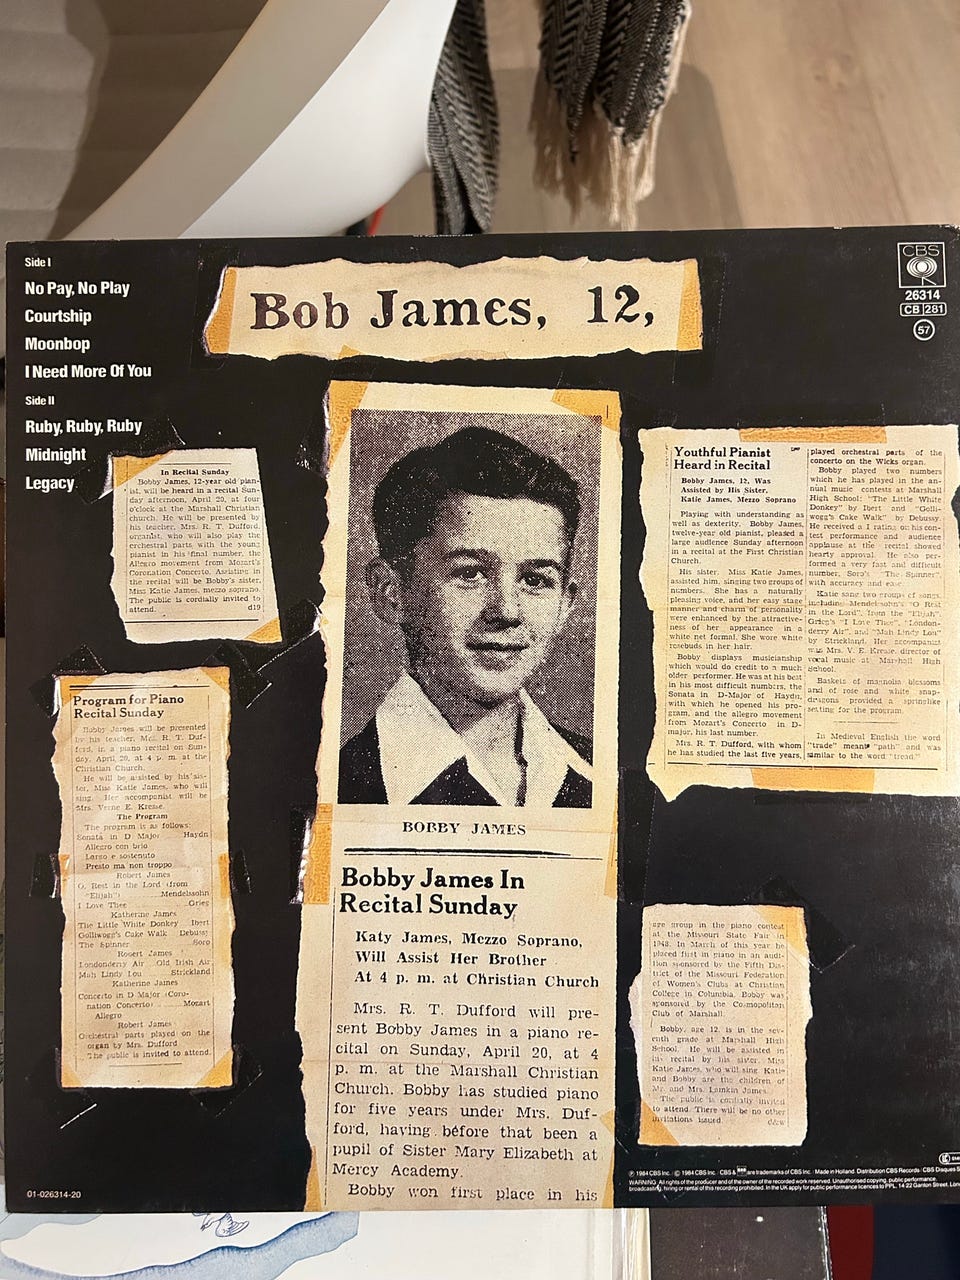 Side I
No Pay, No Play
Courtship
Moonbop
I Need More Of You
Side II
Ruby, Ruby, Ruby
Midnight
Legacy
Bob James, 12,
CBS
26314
CB 281
57
In Recital Sunday
Bobby James, 12-year old pian-
ist, will be heard in a recital Sun-
day afternoon, April 20, at four
o'clock at the Marshall Christian
church. He will be presented by
his teacher, Mrs. R. T. Dufford,
organist, who will also play the
orchestral parts with the young
pianist in his final number, the
Allegro movement from Mozart's
Coronation Concerto. Assisting in
the recital will be Bobby's sister,
Miss Katie James, mezzo soprano.
The public is cordially invited to
attend. d19
Program for Piano
Recital Sunday
Bobby James will be presented
by his teacher, Mrs. R. T. Duf-
ford, in a piano recital on Sun-
day, April 20, at 4 p. m. at the
Christian Church.
He will be assisted by his sis-
ter, Miss Katie James, who will
sing. Her accompanist will be
Mrs. Verne E. Kresse.
The Program
The program is as follows:
Sonata in D Major Haydn
Allegro con brio
Largo e sostenuto
Presto ma non troppo
Robert James
O, Rest in the Lord (from
"Elijah") Mendelssohn
I Love Thee Grieg
Katherine James
The Little White Donkey Ibert
Golliwogg's Cake Walk Debussy
The Spinner Soro
Robert James
Londonderry Air Old Irish Air
Mah Lindy Lou Strickland
Katherine James
Concerto in D Major (Coro-
nation Concerto) Mozart
Allegro
Robert James
Orchestral parts played on the
organ by Mrs. Dufford
The public is invited to attend.
BOBBY JAMES
Bobby James In
Recital Sunday
Katy James, Mezzo Soprano,
Will Assist Her Brother
At 4 p. m. at Christian Church
Mrs. R. T. Dufford will pre-
sent Bobby James in a piano re-
cital on Sunday, April 20, at 4
p. m. at the Marshall Christian
Church. Bobby has studied piano
for five years under Mrs. Duf-
ford, having before that been a
pupil of Sister Mary Elizabeth at
Mercy Academy.
Bobby won first place in his
Youthful Pianist
Heard in Recital
Bobby James, 12, Was
Assisted by His Sister,
Katie James, Mezzo Soprano
Playing with understanding as
well as dexterity, Bobby James,
twelve-year old pianist, pleased a
large audience Sunday afternoon
in a recital at the First Christian
Church.
His sister, Miss Katie James,
assisted him, singing two groups of
numbers. She has a naturally
pleasing voice, and her easy stage
manner and charm of personality
were enhanced by the attractive-
ness of her appearance in a
white net formal. She wore white
rosebuds in her hair.
Bobby displays musicianship
which would do credit to a much
older performer. He was at his best
in his most difficult numbers, the
Sonata in D-Major of Haydn,
with which he opened his pro-
gram, and the allegro movement
from Mozart's Concerto in D-
major, his last number.
Mrs. R. T. Dufford, with whom
he has studied the last five years,
played orchestral parts of the
concerto on the Wicks organ.
Bobby played two numbers
which he has played in the an-
nual music contests at Marshall
High School: "The Little White
Donkey" by Ibert and "Golli-
wogg's Cake Walk" by Debussy.
He received a I rating on his con-
test performance and audience
applause at the recital showed
hearty approval. He also per-
formed a very fast and difficult
number, Soro's "The Spinner",
with accuracy and ease.
Katie sang two groups of songs,
including Mendelssohn's "O Rest
in the Lord", from the "Elijah",
Grieg's "I Love Thee", "London-
derry Air", and "Mah Lindy Lou"
by Strickland. Her accompanist
was Mrs. V. E. Kresse, director of
vocal music at Marshall High
School.
Baskets of magnolia blossoms
and of rose and white snap-
dragons provided a springlike
setting for the program.
In Medieval English the word
"trade" meant "path" and was
similar to the word "tread."
age group in the piano contest
at the Missouri State Fair in
1948. In March of this year he
placed first in piano in an audi-
tion sponsored by the Fifth Dis-
trict of the Missouri Federation
of Women's Clubs at Christian
College in Columbia. Bobby was
sponsored by the Cosmopolitan
Club of Marshall.
Bobby, age 12, is in the sev-
enth grade at Marshall High
School. He will be assisted in
his recital by his sister, Miss
Katie James, who will sing. Katie
and Bobby are the children of
Mr. and Mrs. Lamkin James.
The public is cordially invited
to attend. There will be no other
invitations issued.
01-026314-20
℗ 1984 CBS Inc. © 1984 CBS Inc. CBS & are trademarks of CBS Inc. Made in Holland. Distribution CBS Records. CBS Disques
WARNING: All rights of the producer and of the owner of the recorded work reserved. Unauthorised copying, public performance,
broadcasting, hiring or rental of this recording prohibited. In the UK apply for public performance licences to PPL, 14 22 Ganton Street,